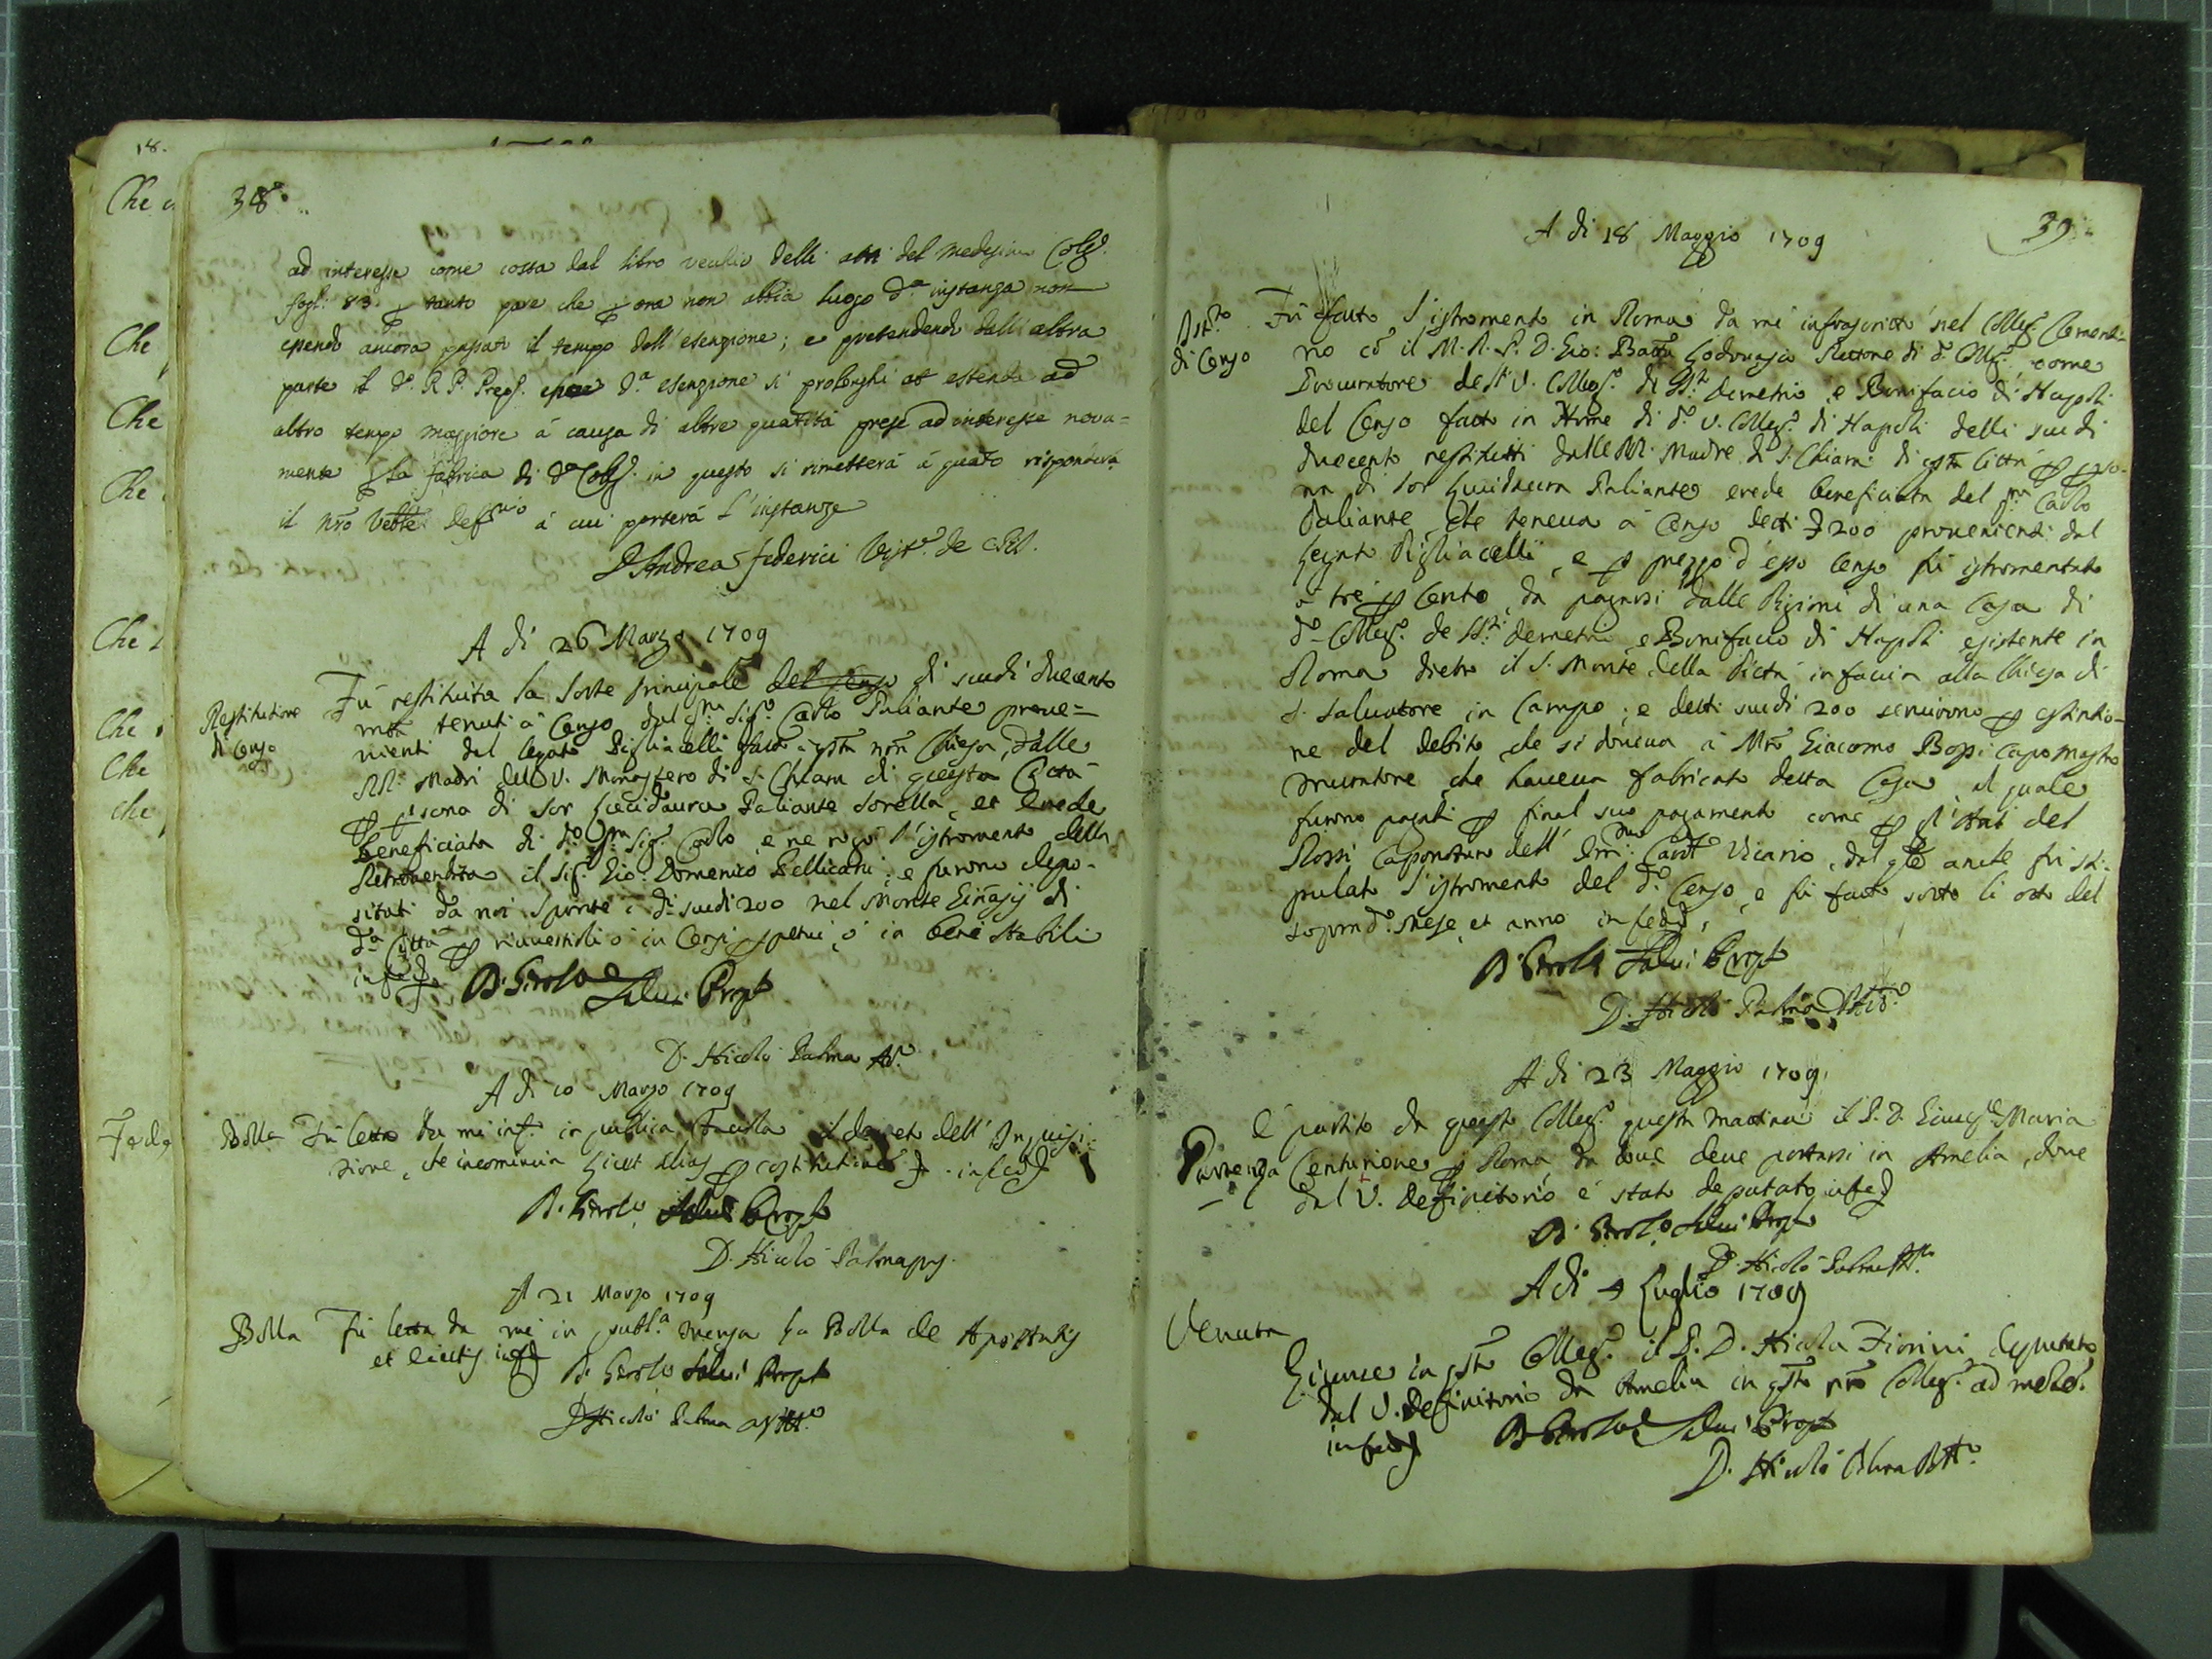 18.
38.
ad interesse come costa dal libro vecchio delli atti del medesimo Colg.
fogl. 83. p tanto pare che p ora non abbia luogo d.a instanza non
essendo ancora passato il tempo dell'esenzione; e pretendendo dall'altra
parte il d.o R. P. Prep. d.a esenzione si prolonghi et estenda ad
altro tempo maggiore á causa di altre quatità prese ad interesse nova=
mente p la fabrica di d.o Collg. in questo si rimetterá á quáto risponderá
il nr̃o Veñle Def.rio á cui porterá l'instanze
D. Andrea Federici Visit.
A di 26 Marzo 1709
Restitutione
di Censo
Fú restituita la sorte principale del censo di scudi ducento
mta tenuti a Censo dal qm Sig.r Carlo Paliante prove=
nienti dal legato Pigliacelli fatto a q̃sta nr̃a Chiesa, dalle
RR. Madri del V. Monastero di S. Chiara di questa Città
p psona di Sor Guidaura Paliante Sorella, et Erede
beneficiata di d.o qm Sig.r Carlo, e ne rogò l'istromento della
Retrovendita il Sig. Gio: Domenico Pellicani; e furono depo-
sitati da noi sponte i d.i scudi 200 nel Monte di
d.a Città p rinvestirli ó in Censi ppetui, ó in beni stabili
in fede
D. Girol.o Salvi Prep.to
D. Nicolò Palma Att.o
A di 10 Marzo 1709
Bolla Fú letto da me inf. in publica il decreto dell'Inquisi-
zione, che incomincia Sicut alias p
in fede
D. Girol.o Salvi Prep.to
D. Nicolò Palma
A 21 Marzo 1709
Bolla Fú letta da me in publ.a mensa la Bolla de Apostatis
et Eiectis in fede
D. Girol.o Salvi Prep.to
D. Nicolò Palma Att.o
39
A di 18 Maggio 1709
Ist.to
di Censo
Fú fatto l'istromento in Roma da me infrascritto nel Colleg. Clementi-
no có il M. R. P. D. Gio: Batta Lodovasio Rettore di d.o Collg., come
Procuratore dell V. Colleg.o di SS.ti Demetrio, e Bonifacio di Napoli
del Censo fatto in Nome di d.o V. Colleg.o di Napoli delli scudi
duecento restituiti dalle RR. Madre di S. Chiara di q̃sta Città p pso-
na di Sor Guidaura Paliante erede beneficiata del qm Carlo
Paliante, che teneva á Censo detti 200 provenienti dal
Legato Pigliacelli, e p prezzo d'esso Censo fú istromentato
a tré p Cento, da pagarsi dalle Pigioni di una Casa di
d.o Colleg.o de SS.ti Demetrio, e Bonifacio di Napoli esistente in
Roma dietro il S. Monte della Pietà in faccia alla Chiesa di
S. Salvatore in Campo; e detti scudi 200 servirono p estintio-
ne del debito, che si doveva á Mr̃o Giacomo Bossi Capo Mastro
Muratore, che haveva fabricato detta Casa, al quale
furono pagati p final suo pagamento come p l'Atti del
Rossi dell' Em̃.mo Card. Vicario, dal q̃le anche fú sti-
pulato l'istromento del d.o Censo, e fú fatto sotto li otto del
soprad.o Mese, et anno in fede.
D. Girol.o Salvi Prep.to
D. Nicolò Palma Att.o
A di 23 Maggio 1709
Partenza
É partito da questo Colleg.o questa mattina il P. D. Maria
Centurione p Roma da dove deve portarsi in Amelia, dove
dal V. Definitorio é stato deputato in fede
D. Girol.o Salvi Prep.to
D. Nicolò Palma Att.o
A di 4 Luglio 1709
Venuta
Giunse in q̃sto Colleg.o il P. D. Nicola Fiorini deputato
dal V. Definitorio da Amelia in q̃sto nr̃o Colleg.o
in fede
D. Girol.o Salvi Prep.to
D. Nicolò Palma Att.o